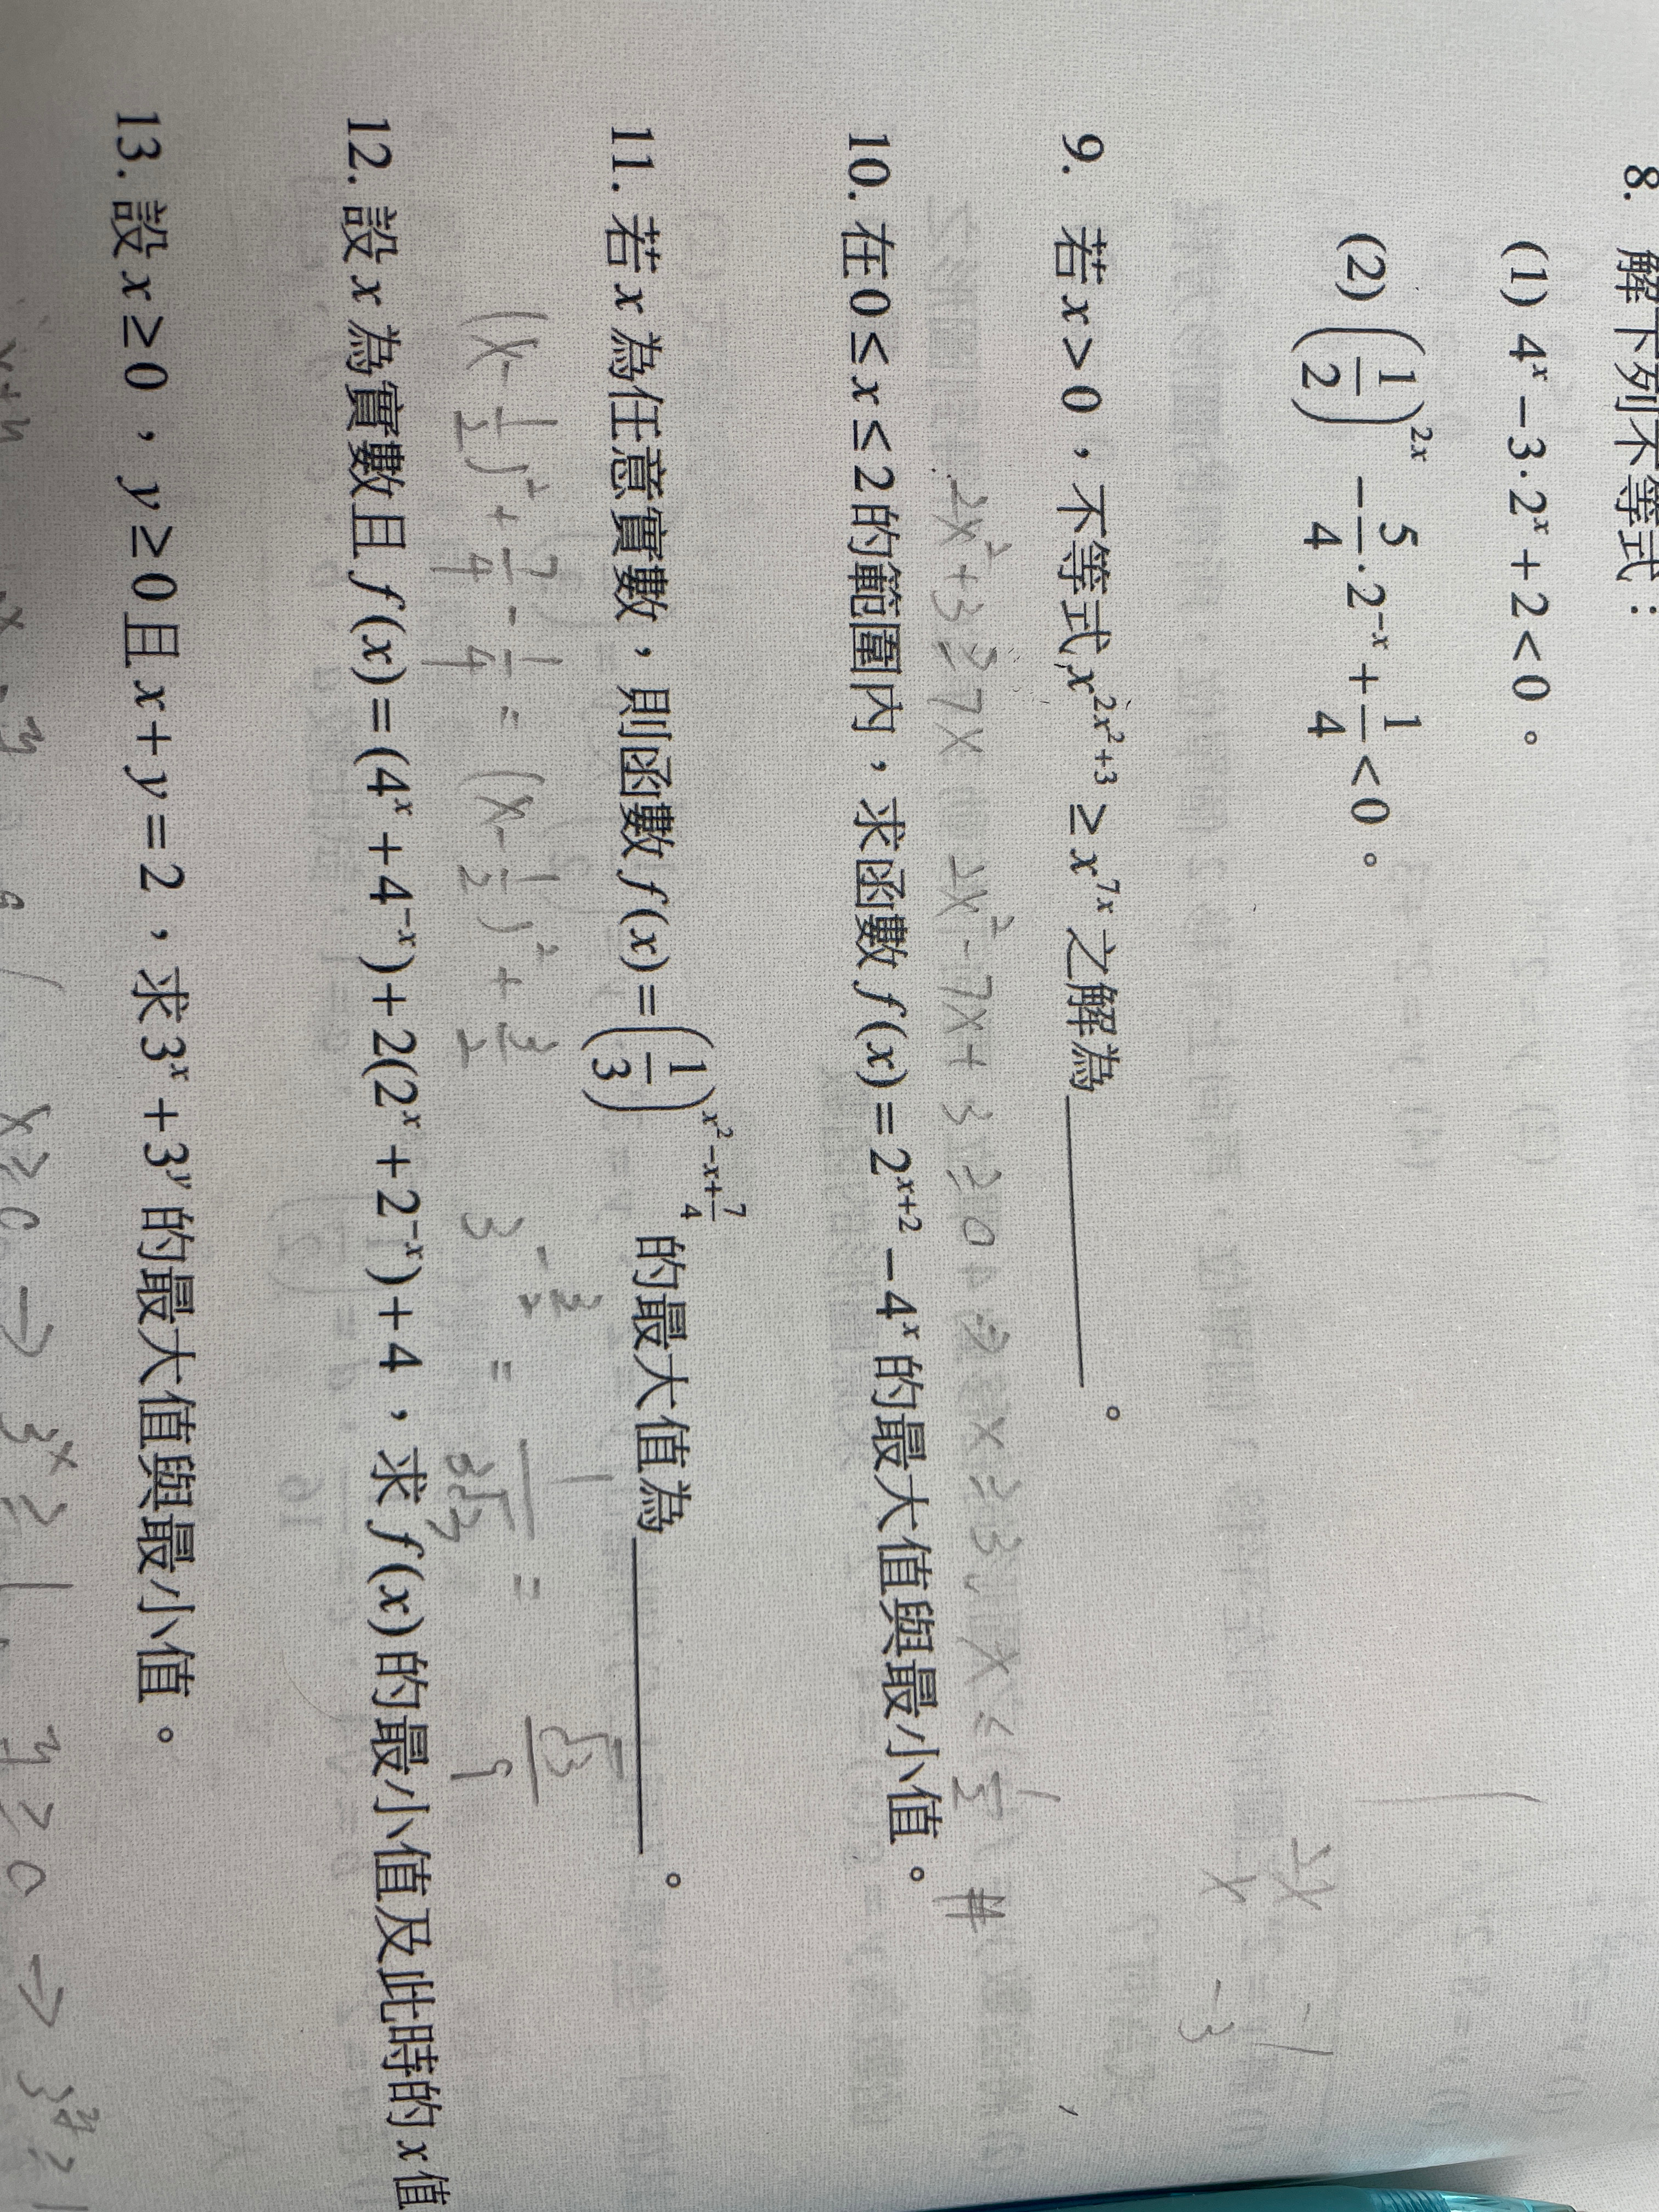 8. 解下列不等式：
(1) 4ˣ－3·2ˣ＋2＜0。
(2) (1/2)²ˣ－5/4·2⁻ˣ＋1/4＜0。
2x -1
x -3
9. 若x＞0，不等式x^(2x²+3)≥x^(7x)之解為＿＿＿＿。
2x²+3≥7x 2x²-7x+3≥0 x≥3 x≤1/2 #
10. 在0≤x≤2的範圍內，求函數f(x)=2^(x+2)－4ˣ的最大值與最小值。
11. 若x為任意實數，則函數f(x)=(1/3)^(x²－x+7/4)的最大值為＿＿＿＿。
(x-1/2)²+7/4-1/4=(x-1/2)²+3/2 3^(-3/2)=1/(3√3)=√3/9
12. 設x為實數且f(x)=(4ˣ+4⁻ˣ)+2(2ˣ+2⁻ˣ)+4，求f(x)的最小值及此時的x值
13. 設x≥0，y≥0且x+y=2，求3ˣ+3ʸ的最大值與最小值。
x≥0→3ˣ≥1 y≥0→3ʸ≥1